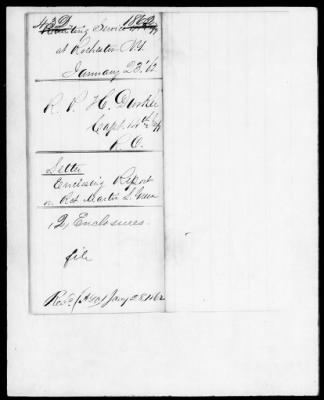 43 D 1862
Recruiting Service
at Rochester N.Y.
January 23' 62
R. P. H. Durkee
Capt. 14th Infy
R. O.
Letter
Enclosing Report
on Rct Martin L. Green
(2) Enclosures.
file
Recd (AGO) Jany 28th 62